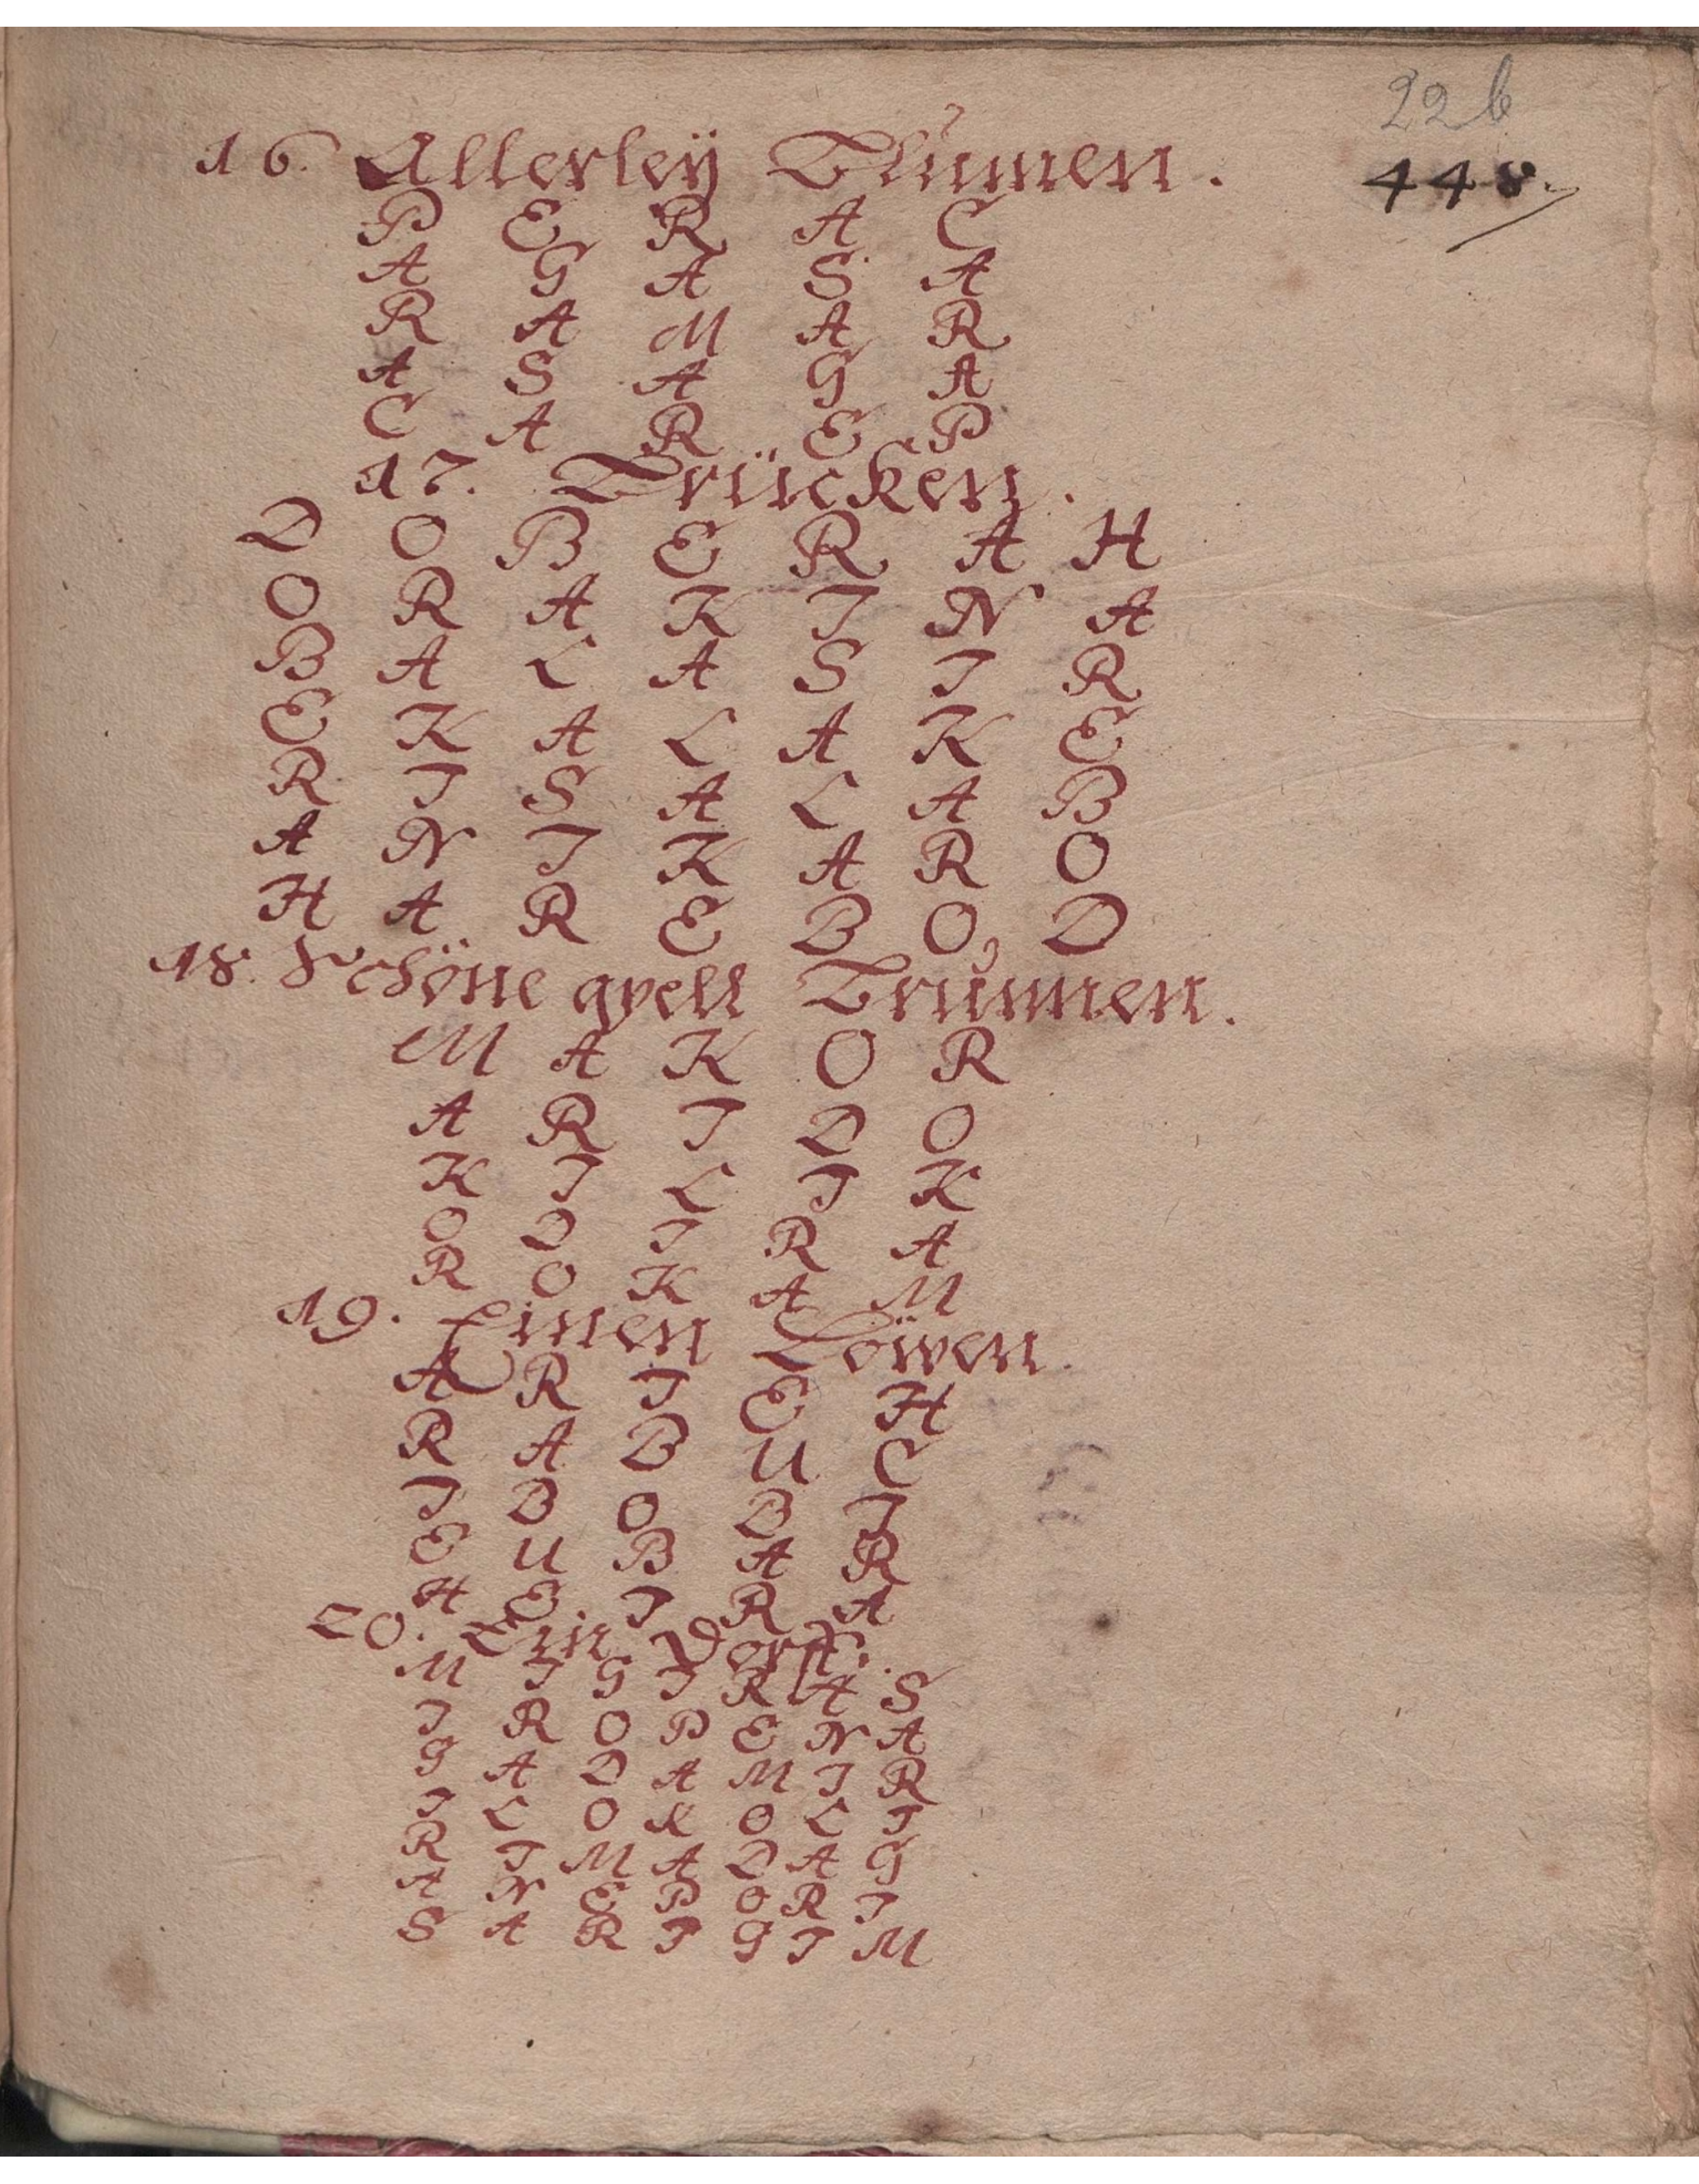 22b
448.
16. Allerleÿ Blumen.
P E R A C
A G A S A
R A M A R
A S A G A
C A R E P
17. Brücken.
D O B E R A H
O R A K I N A
B A L A S I R
E K A L A K E
R I S A L A B
A N I K A R O
H A R E B O D
18. Schöne qvell Brunnen.
M A K O R
A R I D O
K I L I K
O D I R A
R O K A M
19. Einen Löwen.
A R I E H
R A B U C
I B O B I
E U B A R
H E I R A
20. Ein Dorff.
M I G I R A S
I R O P E N A
G A D A M I R
I L O K O L I
R I M A D A G
A N E P O R I
S A R I G I M